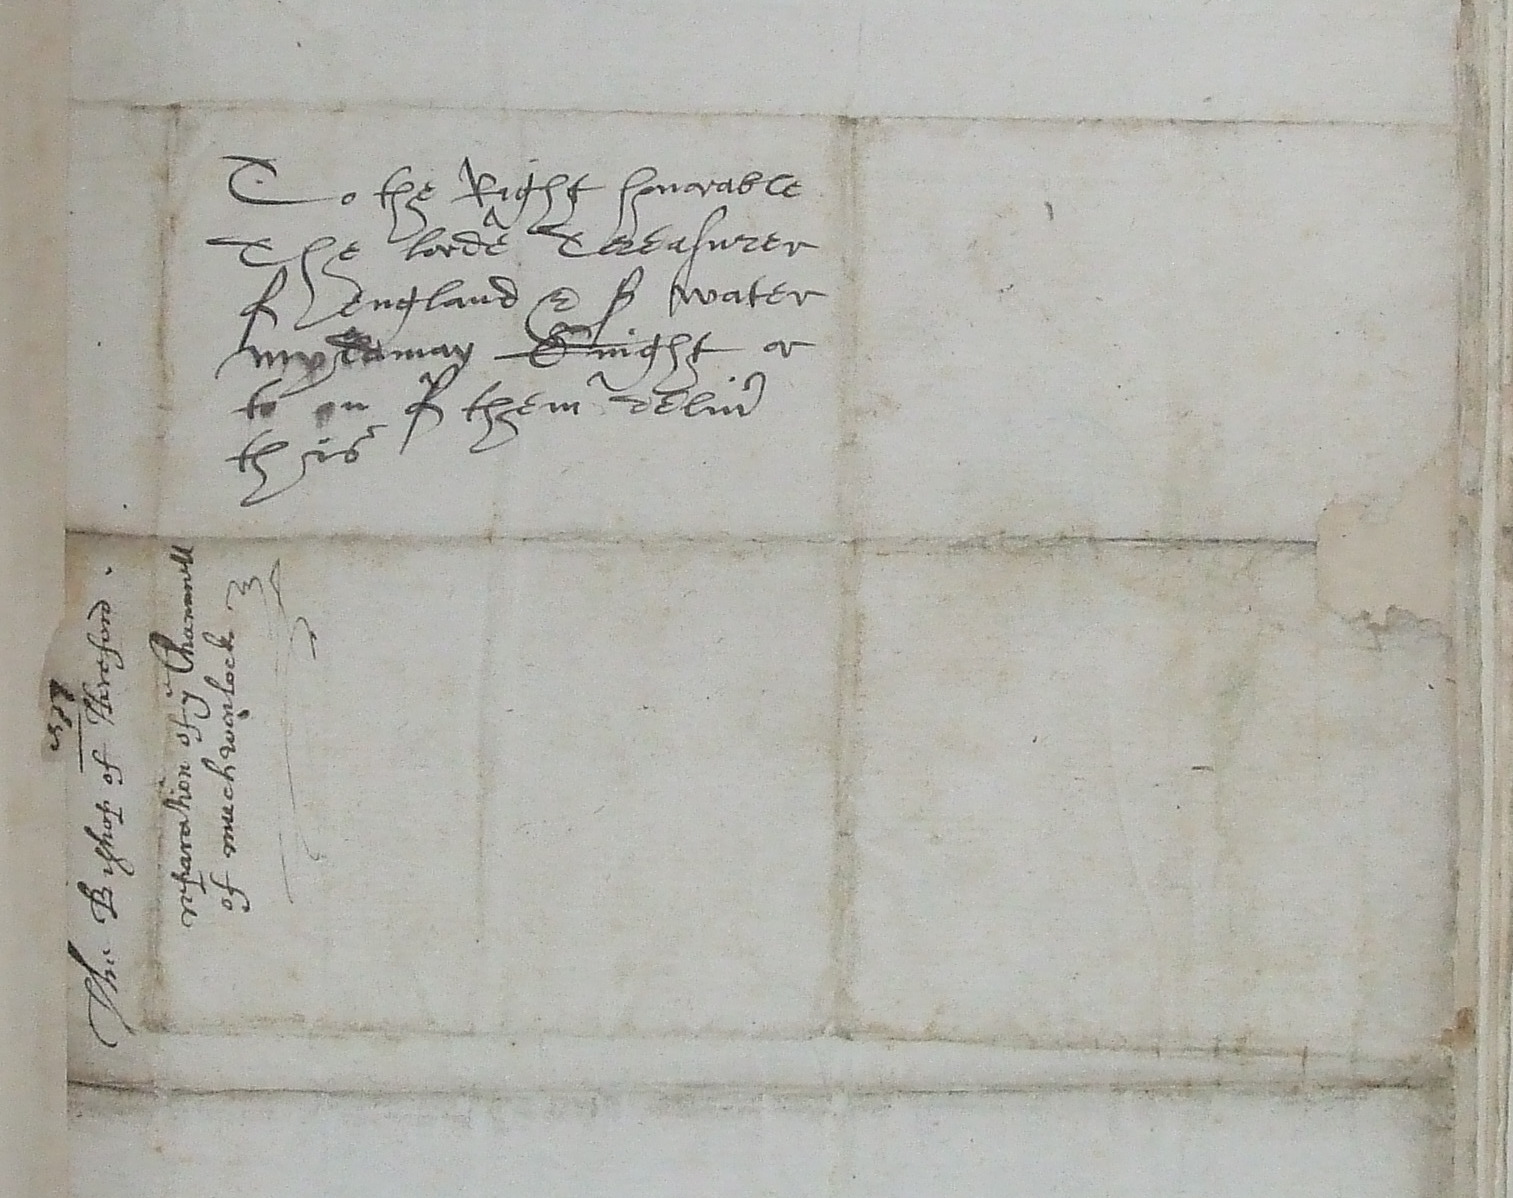 To the Right honorable
The lorde Treasurer
of england & Sr water
myldmay Knight or
to on of them deliur
this
The Bishop of Hereford.
reparation of ye Chauncell
of much wenlock